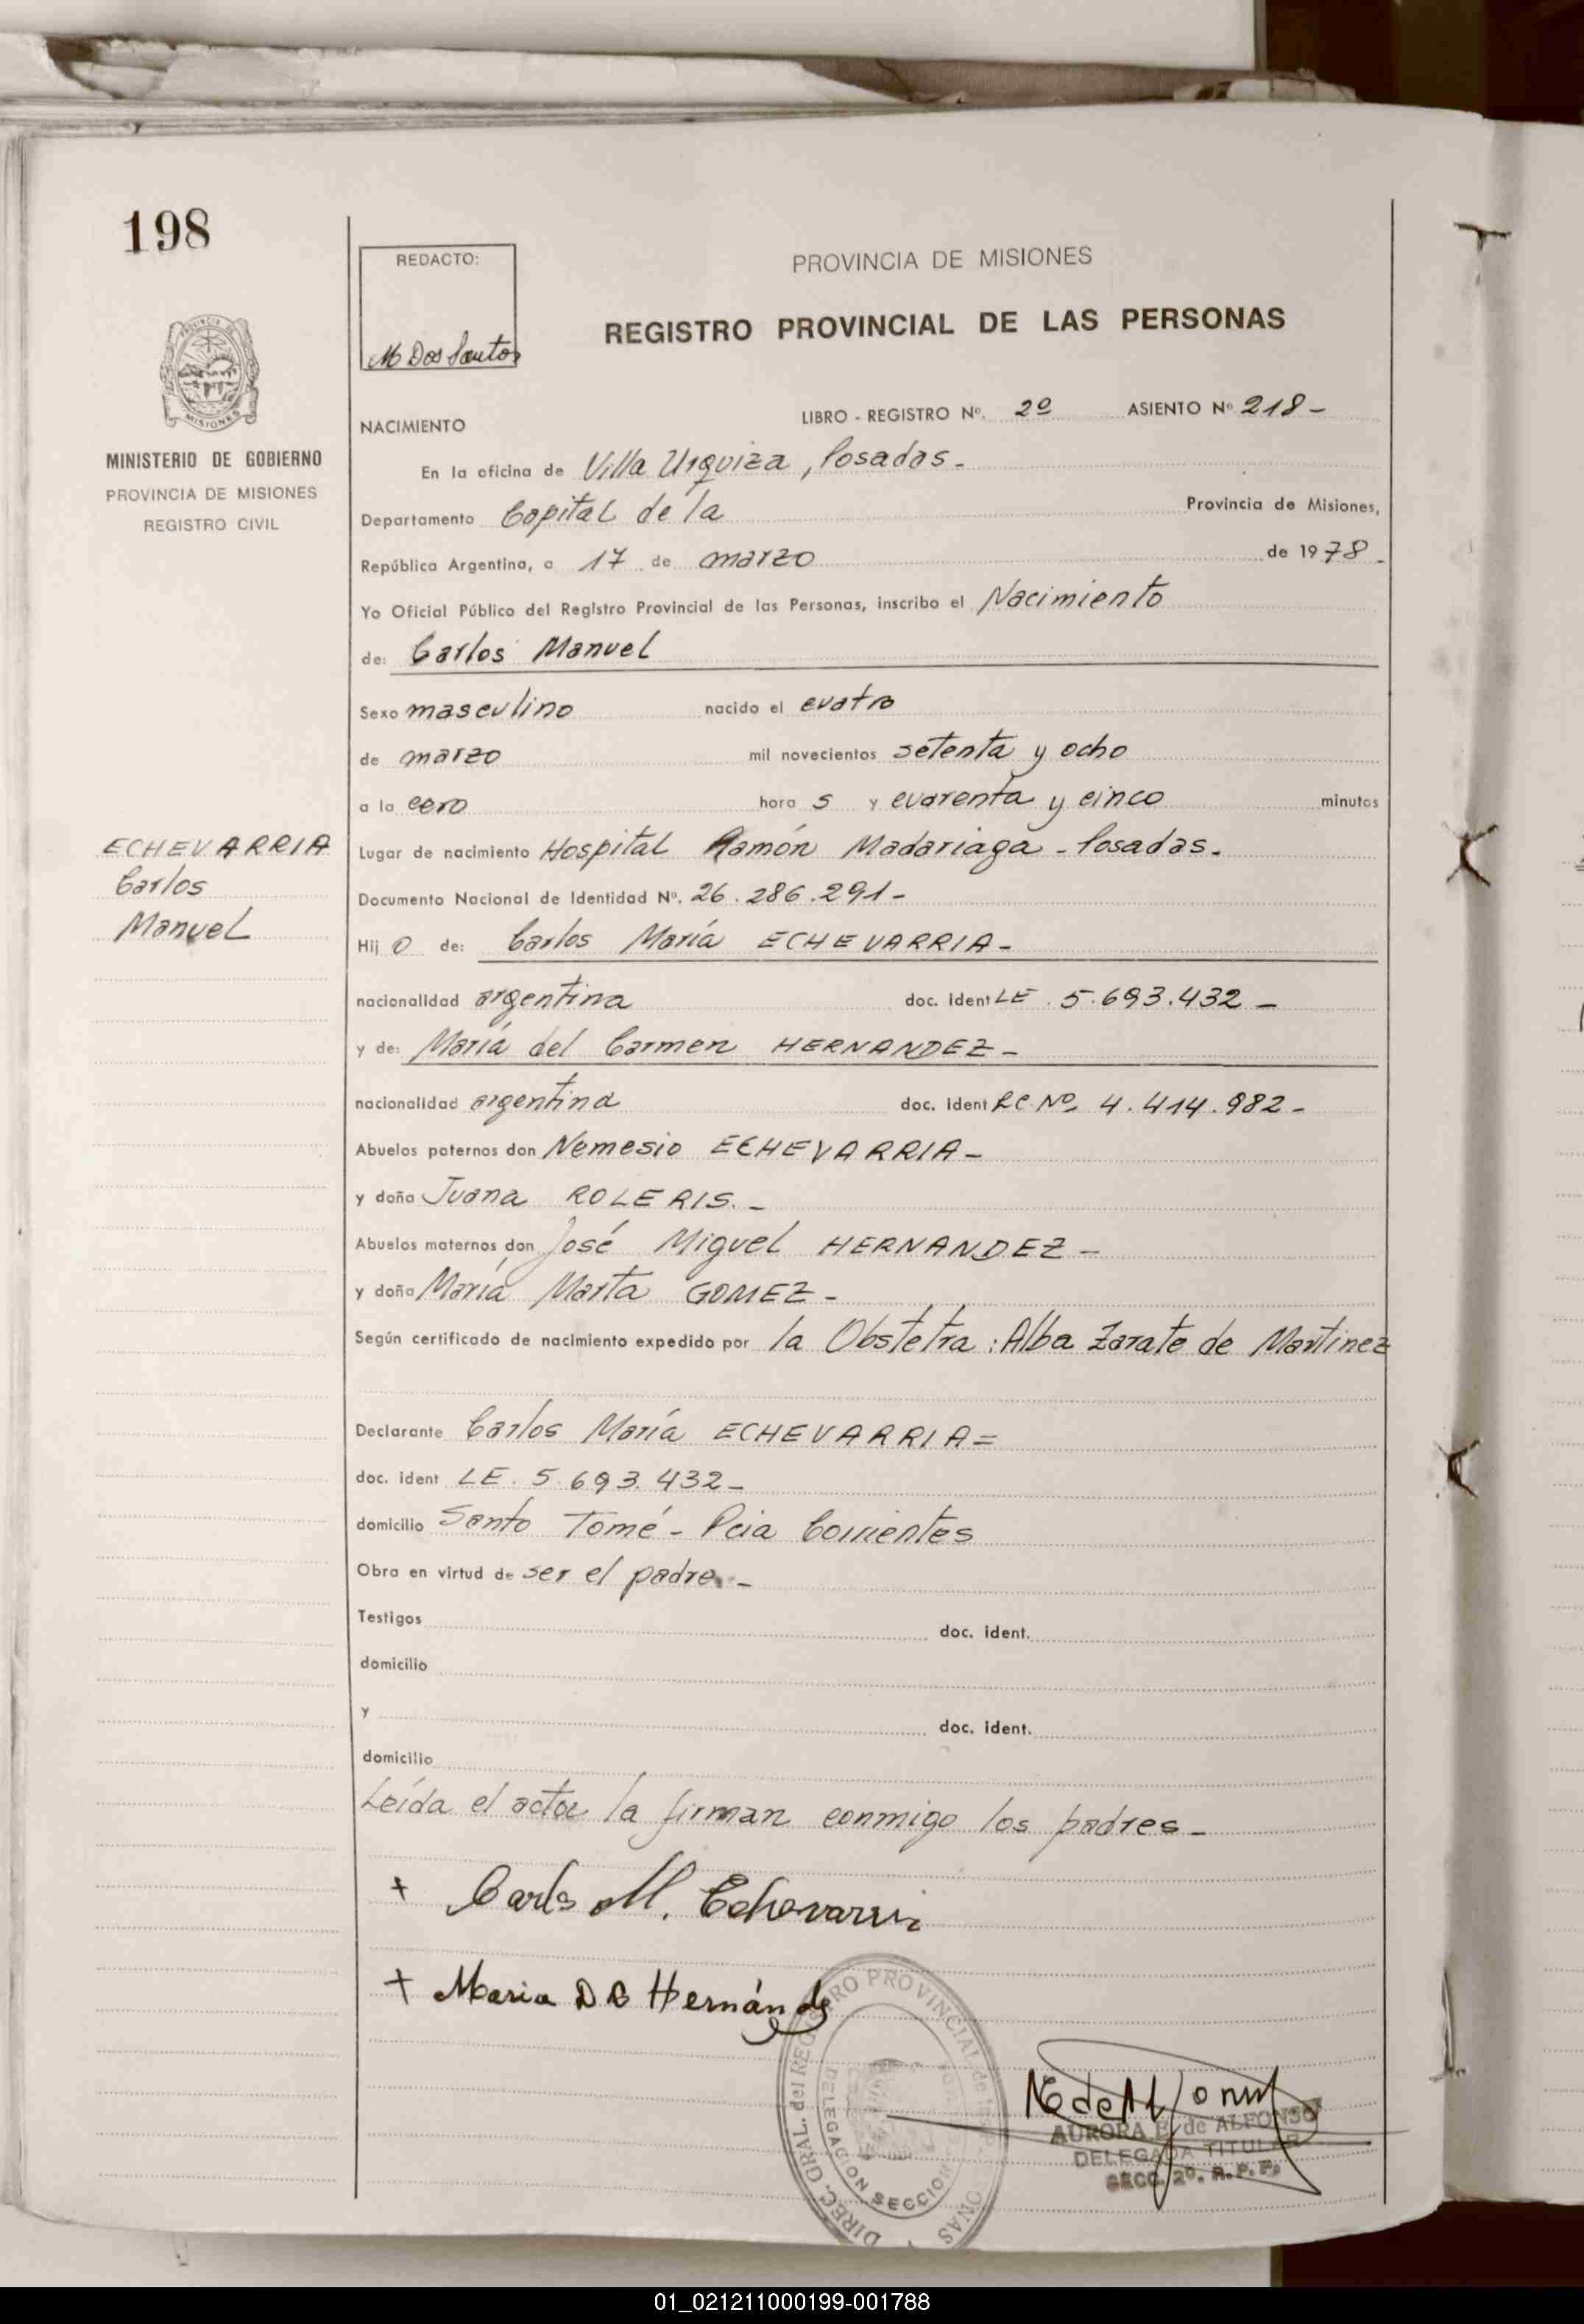 198
REDACTO:
M Dos Santos
PROVINCIA DE MISIONES
REGISTRO PROVINCIAL DE LAS PERSONAS
PROVINCIA DE
MISIONES
MINISTERIO DE GOBIERNO
PROVINCIA DE MISIONES
REGISTRO CIVIL
NACIMIENTO LIBRO - REGISTRO Nº. 2º ASIENTO Nº 218-
En la oficina de Villa Urquiza, Posadas-
Departamento Capital de la Provincia de Misiones,
República Argentina, a 17 de marzo de 1978-
Yo Oficial Público del Registro Provincial de las Personas, inscribo el Nacimiento
de: Carlos Manuel
Sexo masculino nacido el cuatro
de marzo mil novecientos setenta y ocho
a la cero hora s y cuarenta y cinco minutos
ECHEVARRIA
Carlos
Manuel
Lugar de nacimiento Hospital Ramón Madariaga - Posadas.
Documento Nacional de Identidad Nº. 26.286.291-
Hij o de: Carlos María ECHEVARRIA-
nacionalidad argentina doc. ident LE. 5.693.432-
y de: María del Carmen HERNANDEZ-
nacionalidad argentina doc. ident LC. Nº 4.414.982-
Abuelos paternos don Nemesio ECHEVARRIA-
y doña Juana ROLERIS.-
Abuelos maternos don José Miguel HERNANDEZ-
y doña María Marta GOMEZ-
Según certificado de nacimiento expedido por la Obstetra: Alba Zarate de Martinez
Declarante Carlos María ECHEVARRIA=
doc. ident LE. 5.693.432-
domicilio Santo Tomé - Pcia Corrientes
Obra en virtud de ser el padre.-
Testigos doc. ident.
domicilio
y doc. ident.
domicilio
Leída el acta la firman conmigo los padres-
+ Carlos M. Echevarria
+ Maria D C Hernández
DIREC. GRAL. del REGISTRO PROVINCIAL de las PERSONAS
DELEGACION SECCION
AURORA E. de ALFONSO
DELEGADA TITULAR
SECC. 2º. R. P. P.
01_021211000199-001788